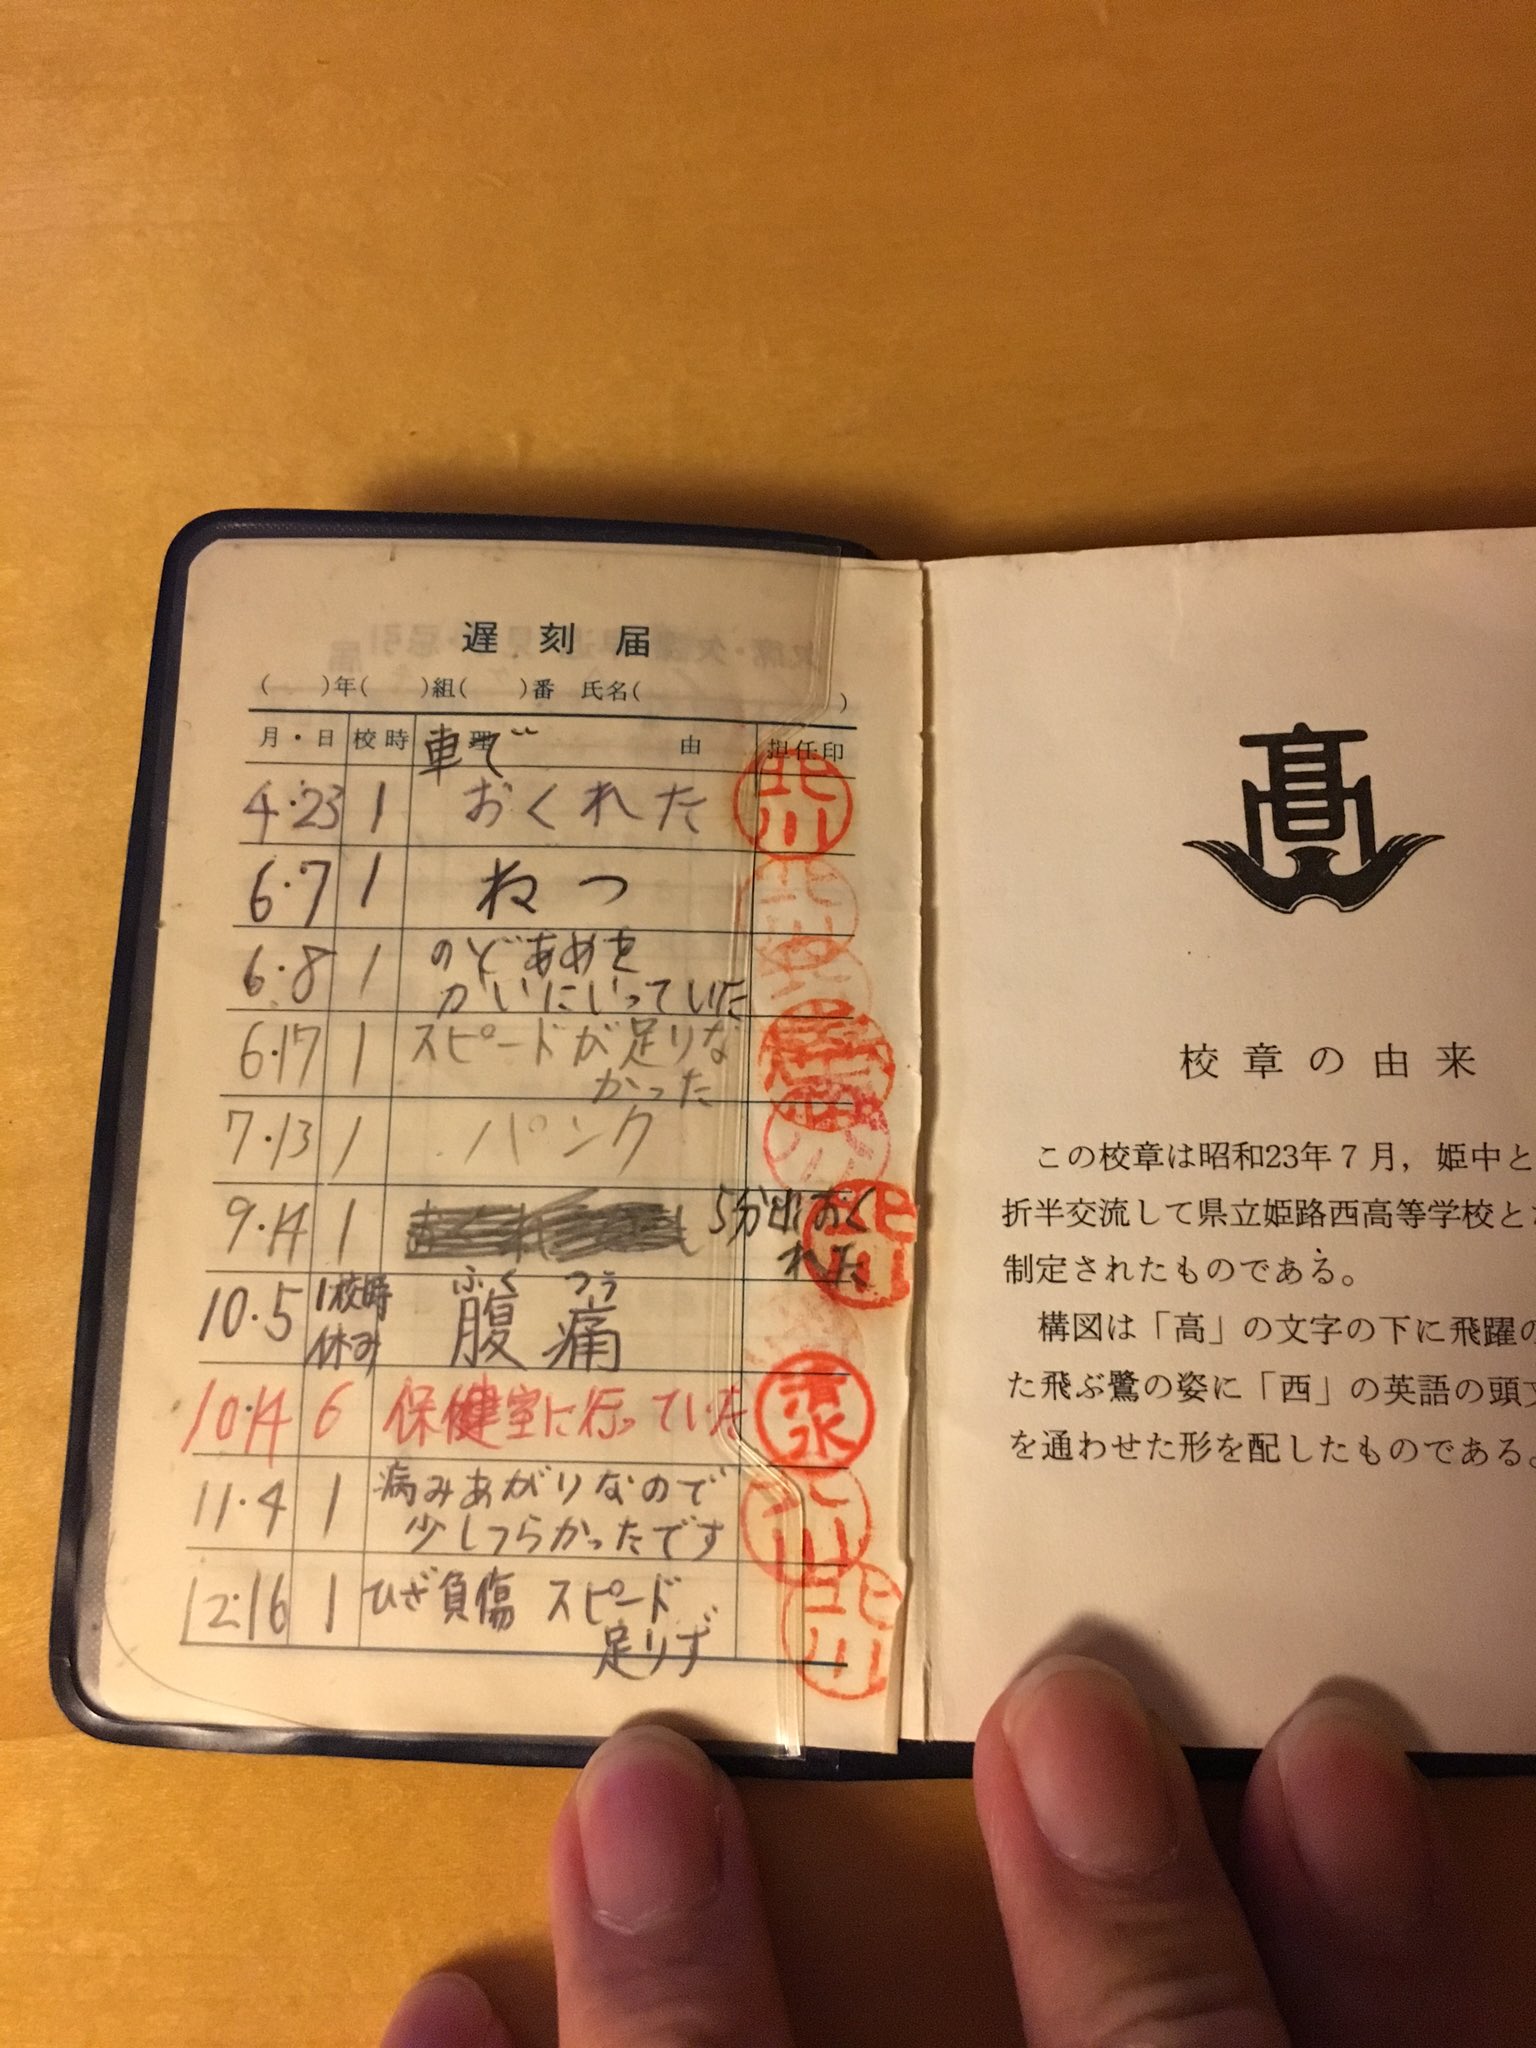 遅刻届
(　　)年(　　)組(　　)番　氏名(　　　　　)
月・日 校時 理由 担任印
車で
4・23 1 おくれた 北川
6・7 1 ねつ
6・8 1 のどあめを
かいにいっていた
6・17 1 スピードが足りな
かった
7・13 1 パンク
9・14 1 5分出おく
れた 北川
ふく つう
10・5 1校時
休み 腹痛
10・14 6 保健室に行っていた 清水
11・4 1 病みあがりなので
少しつらかったです
12・16 1 ひざ負傷 スピード
足りず 北川
高
校章の由来
この校章は昭和23年7月，姫中と
折半交流して県立姫路西高等学校と
制定されたものである。
構図は「高」の文字の下に飛躍の
た飛ぶ鷺の姿に「西」の英語の頭文
を通わせた形を配したものである。